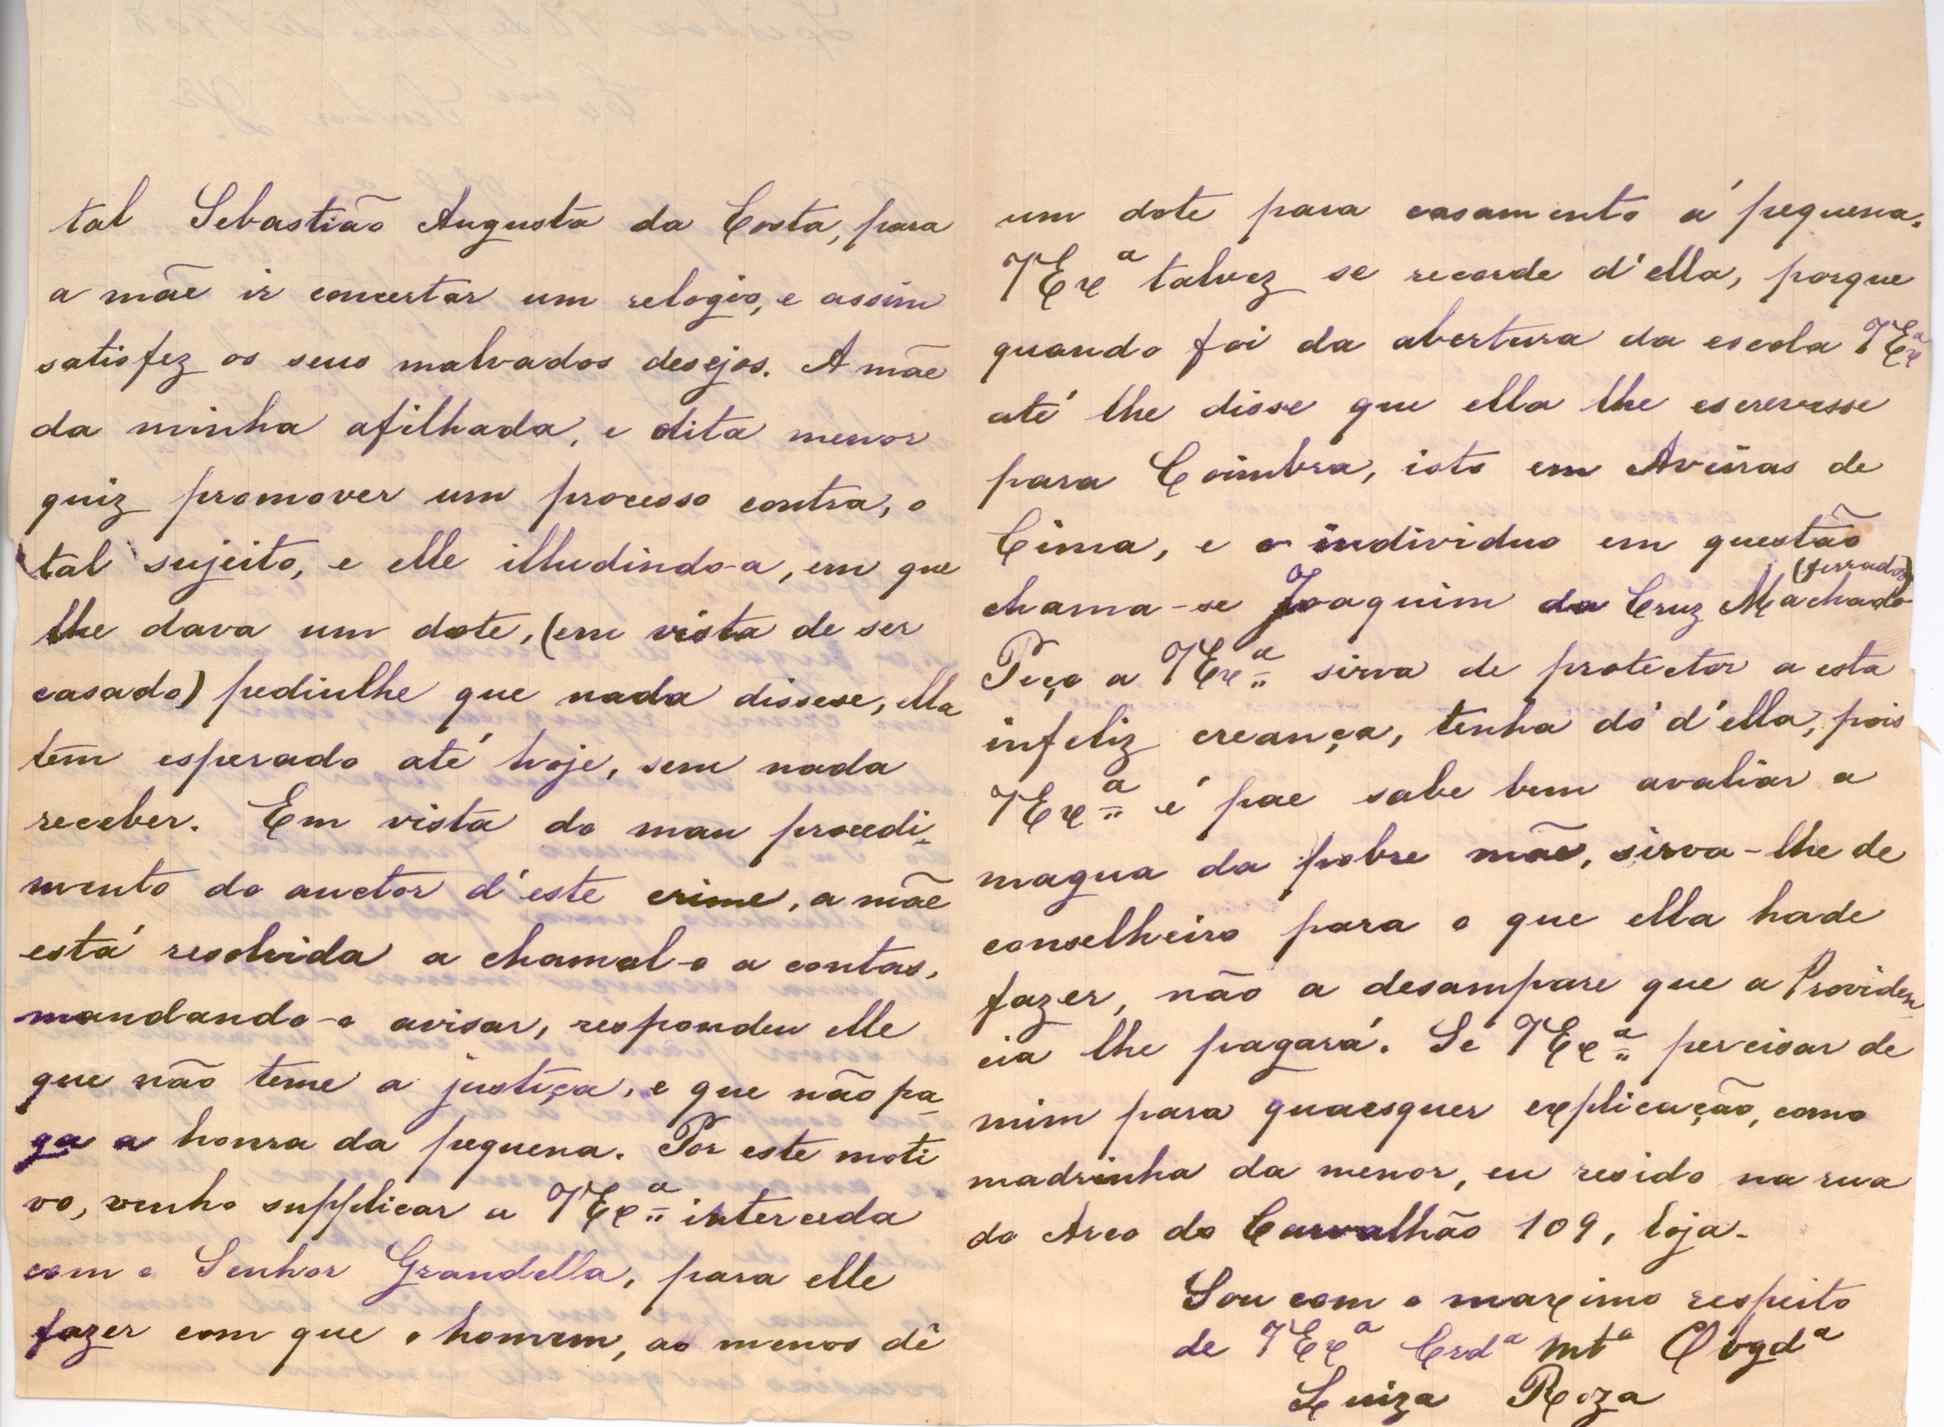 tal Sebastião Augusto da Costa, para
a mãe ir concertar um relogio, e assim
satisfez os seus malvados desejos. A mãe
da minha afilhada, e dita menor
quiz promover um processo contra, o
tal sujeito, e elle illudindo-a, em que
lhe dava um dote, (em vista de ser
casado) pediulhe que nada dissese, ella
tem esperado até hoje, sem nada
receber. Em vista do mau procedi-
mento do auctor d'este crime, a mãe
está resolvida a chamal-o a contas,
mandando-o avisar, respondeu elle
que não teme a justiça, e que não pa-
ga a honra da pequena. Por este moti
vo, venho supplicar a VExª interceda
com o Senhor Grandella, para elle
fazer com que o homem, ao menos dê
um dote para casamento á pequena.
VExª talvez se recorde d'ella, porque
quando foi da abertura da escola VExª
até lhe disse que ella lhe escrevesse
para Coimbra, isto em Aveiras de
Cima, e o individuo em questão
(ferrador)
chama-se Joaquim da Cruz Machado
Peço a VExª sirva de protector a esta
infeliz creança, tenha dó d'ella, pois
VExª é pae sabe bem avaliar a
magua da pobre mãe, sirva-lhe de
conselheiro para o que ella hade
fazer, não a desampare que a Providen-
cia lhe pagará. Se VExª percisar de
mim para quaesquer explicação, como
madrinha da menor, eu resido na rua
do Arco do Carvalhão 109, loja.
Sou com o maximo respeito
de VExª Crdª mtª Obgdª
Luiza Roza